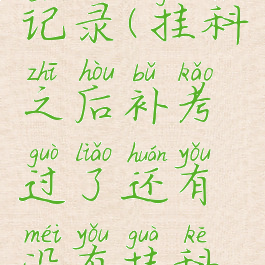 记录(挂科
zhī hòu bǔ kǎo
之后补考
guò liǎo huán yǒu
过了还有
méi yǒu guà kē
没有挂科